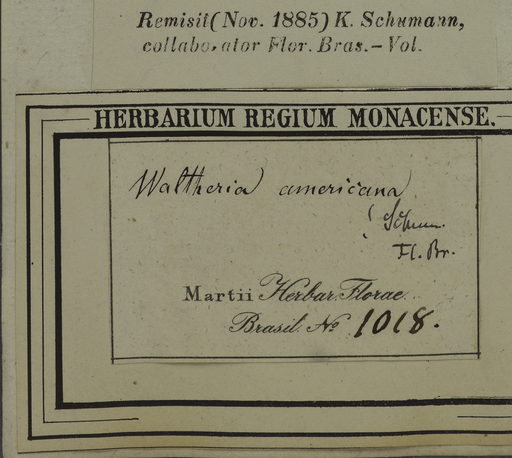 Remisit (Nov. 1885) K. Schumann,
collaborator Flor. Bras. – Vol.
HERBARIUM REGIUM MONACENSE.
Waltheria americana
! Schum.
Fl. Br.
Martii Herbar. Florae
Brasil. No 1018.